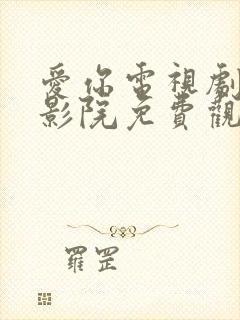 愛你電視劇
影院免費觀
羅罡